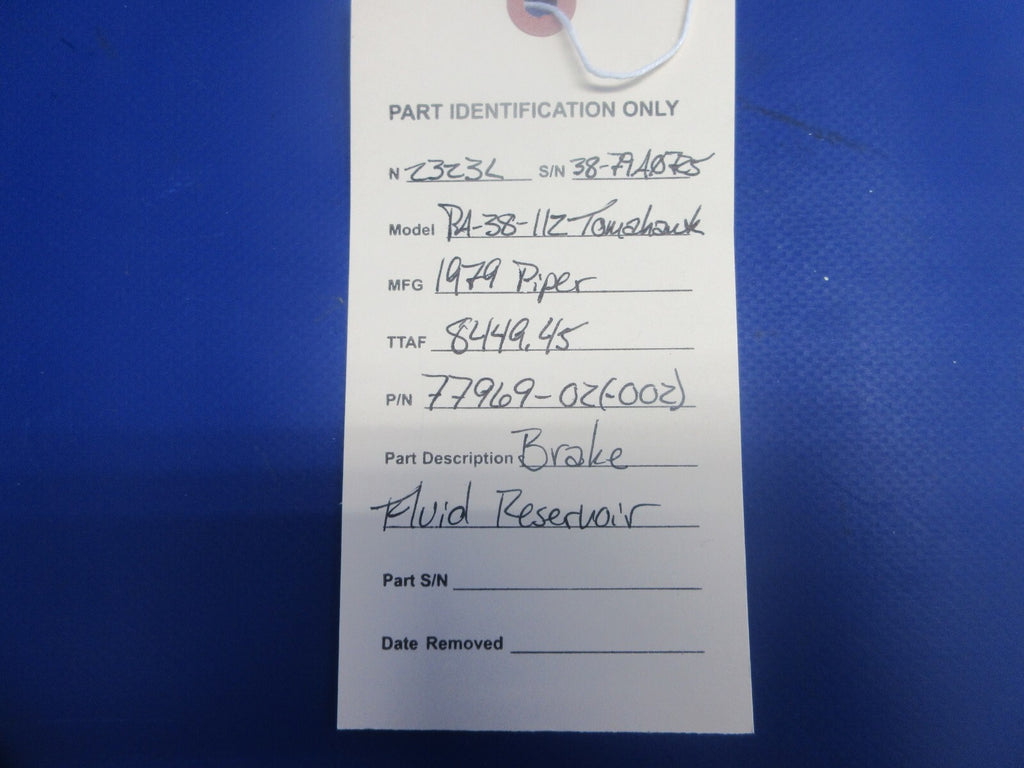 PART IDENTIFICATION ONLY
N 2323L S/N 38-79A0725
Model PA-38-112 Tomahawk
MFG 1979 Piper
TTAF 8449.45
P/N 77969-02(-002)
Part Description: Brake
Fluid Reservoir
Part S/N
Date Removed